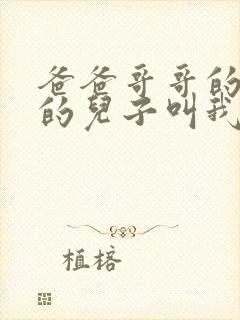 爸爸哥哥的
的兒子叫我
植榕